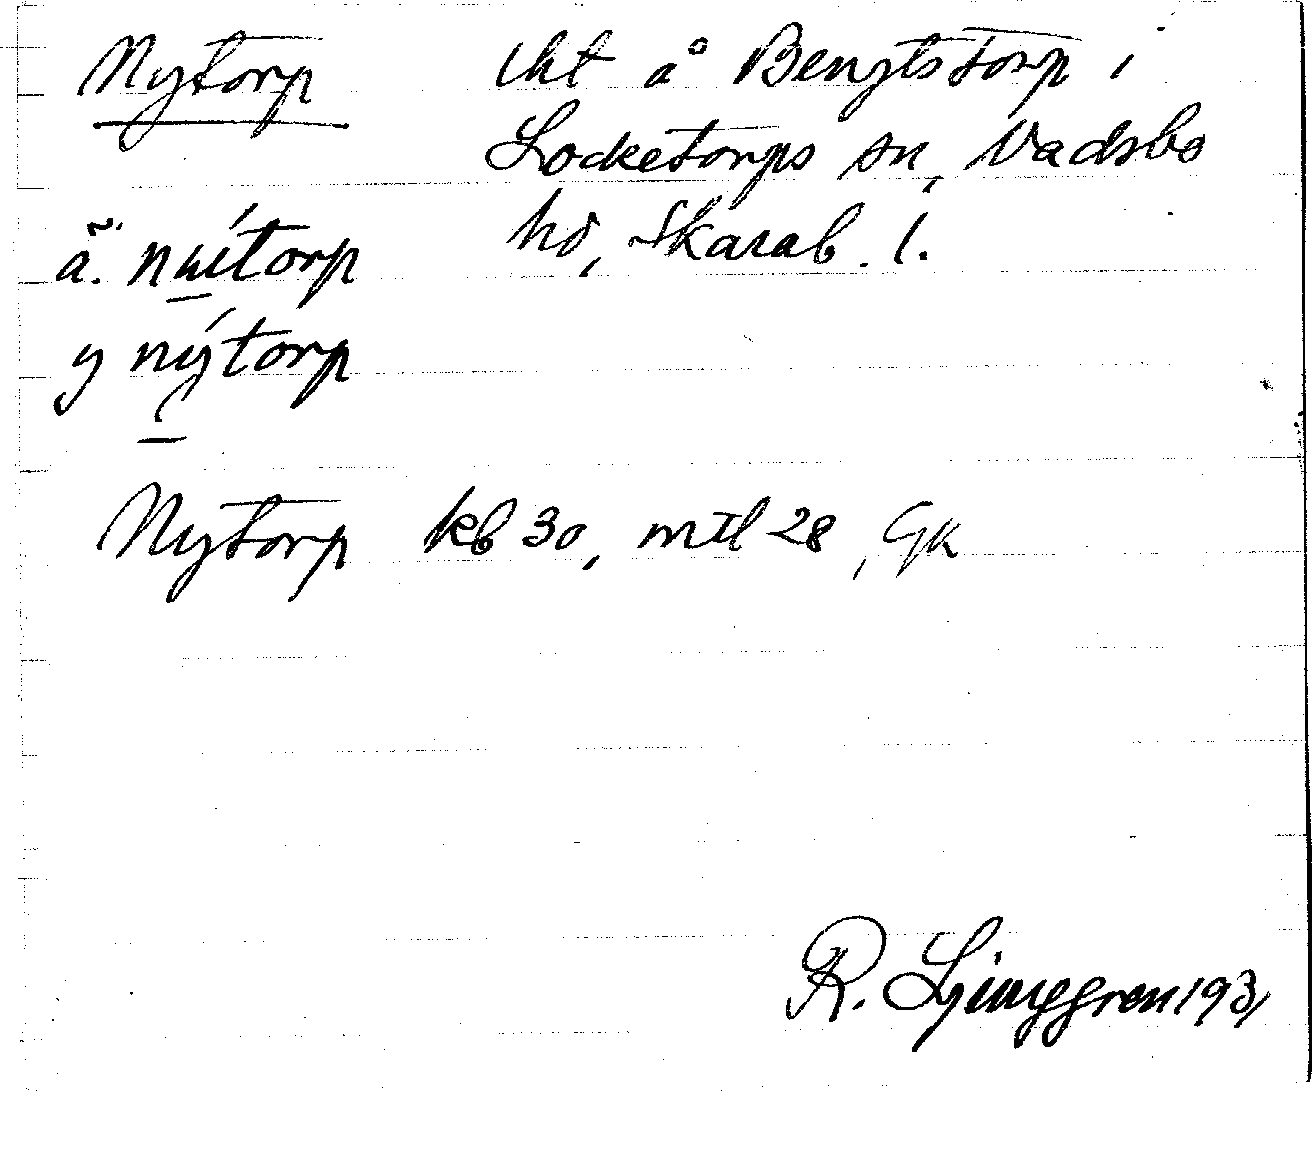 Nytorp
lht å Bengtstorp i
Locketorps sn, Vadsbo
hd, Skarab. l.
ä. nuítorp
y nýtorp
Nytorp kb 30, mtl 28, GK
R. Ljunggren 1931